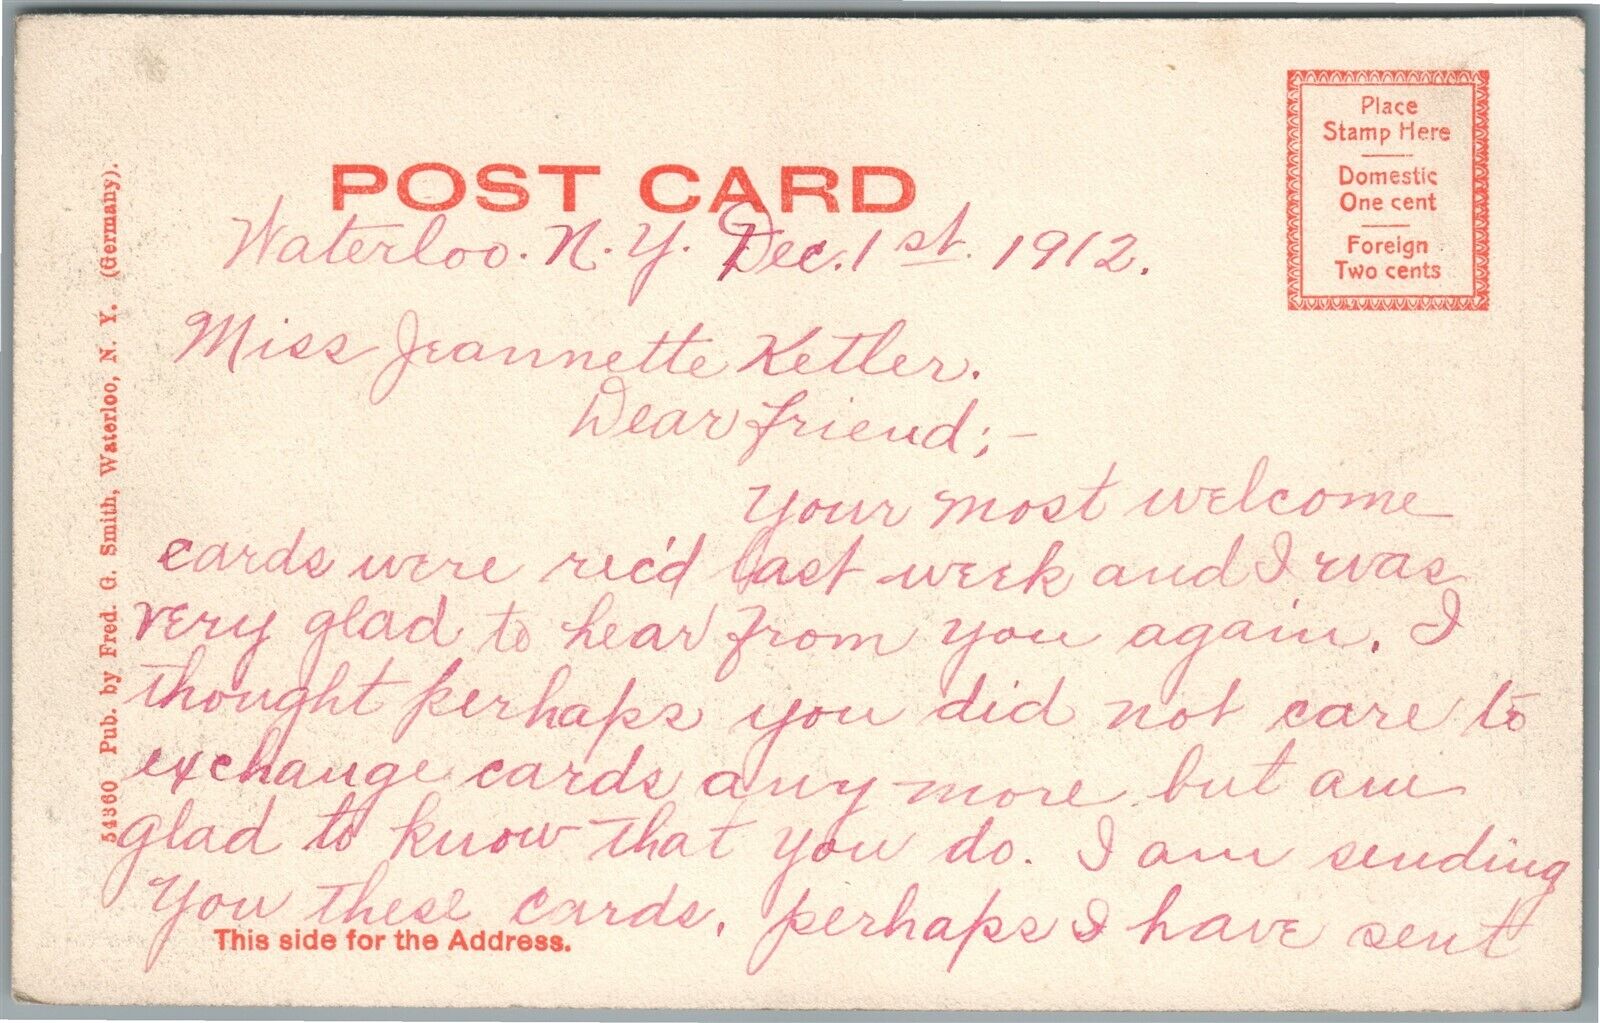 POST CARD
Place
Stamp Here
Domestic
One cent
Foreign
Two cents
54360 Pub. by Fred. G. Smith, Waterloo, N. Y. (Germany).
Waterloo. N. Y. Dec. 1st. 1912.
Miss Jeannette Ketler.
Dear friend;-
Your most welcome
cards were rec'd last week and I was
very glad to hear from you again. I
thought perhaps you did not care to
exchange cards any more but am
glad to know that you do. I am sending
you these cards, perhaps I have sent
This side for the Address.